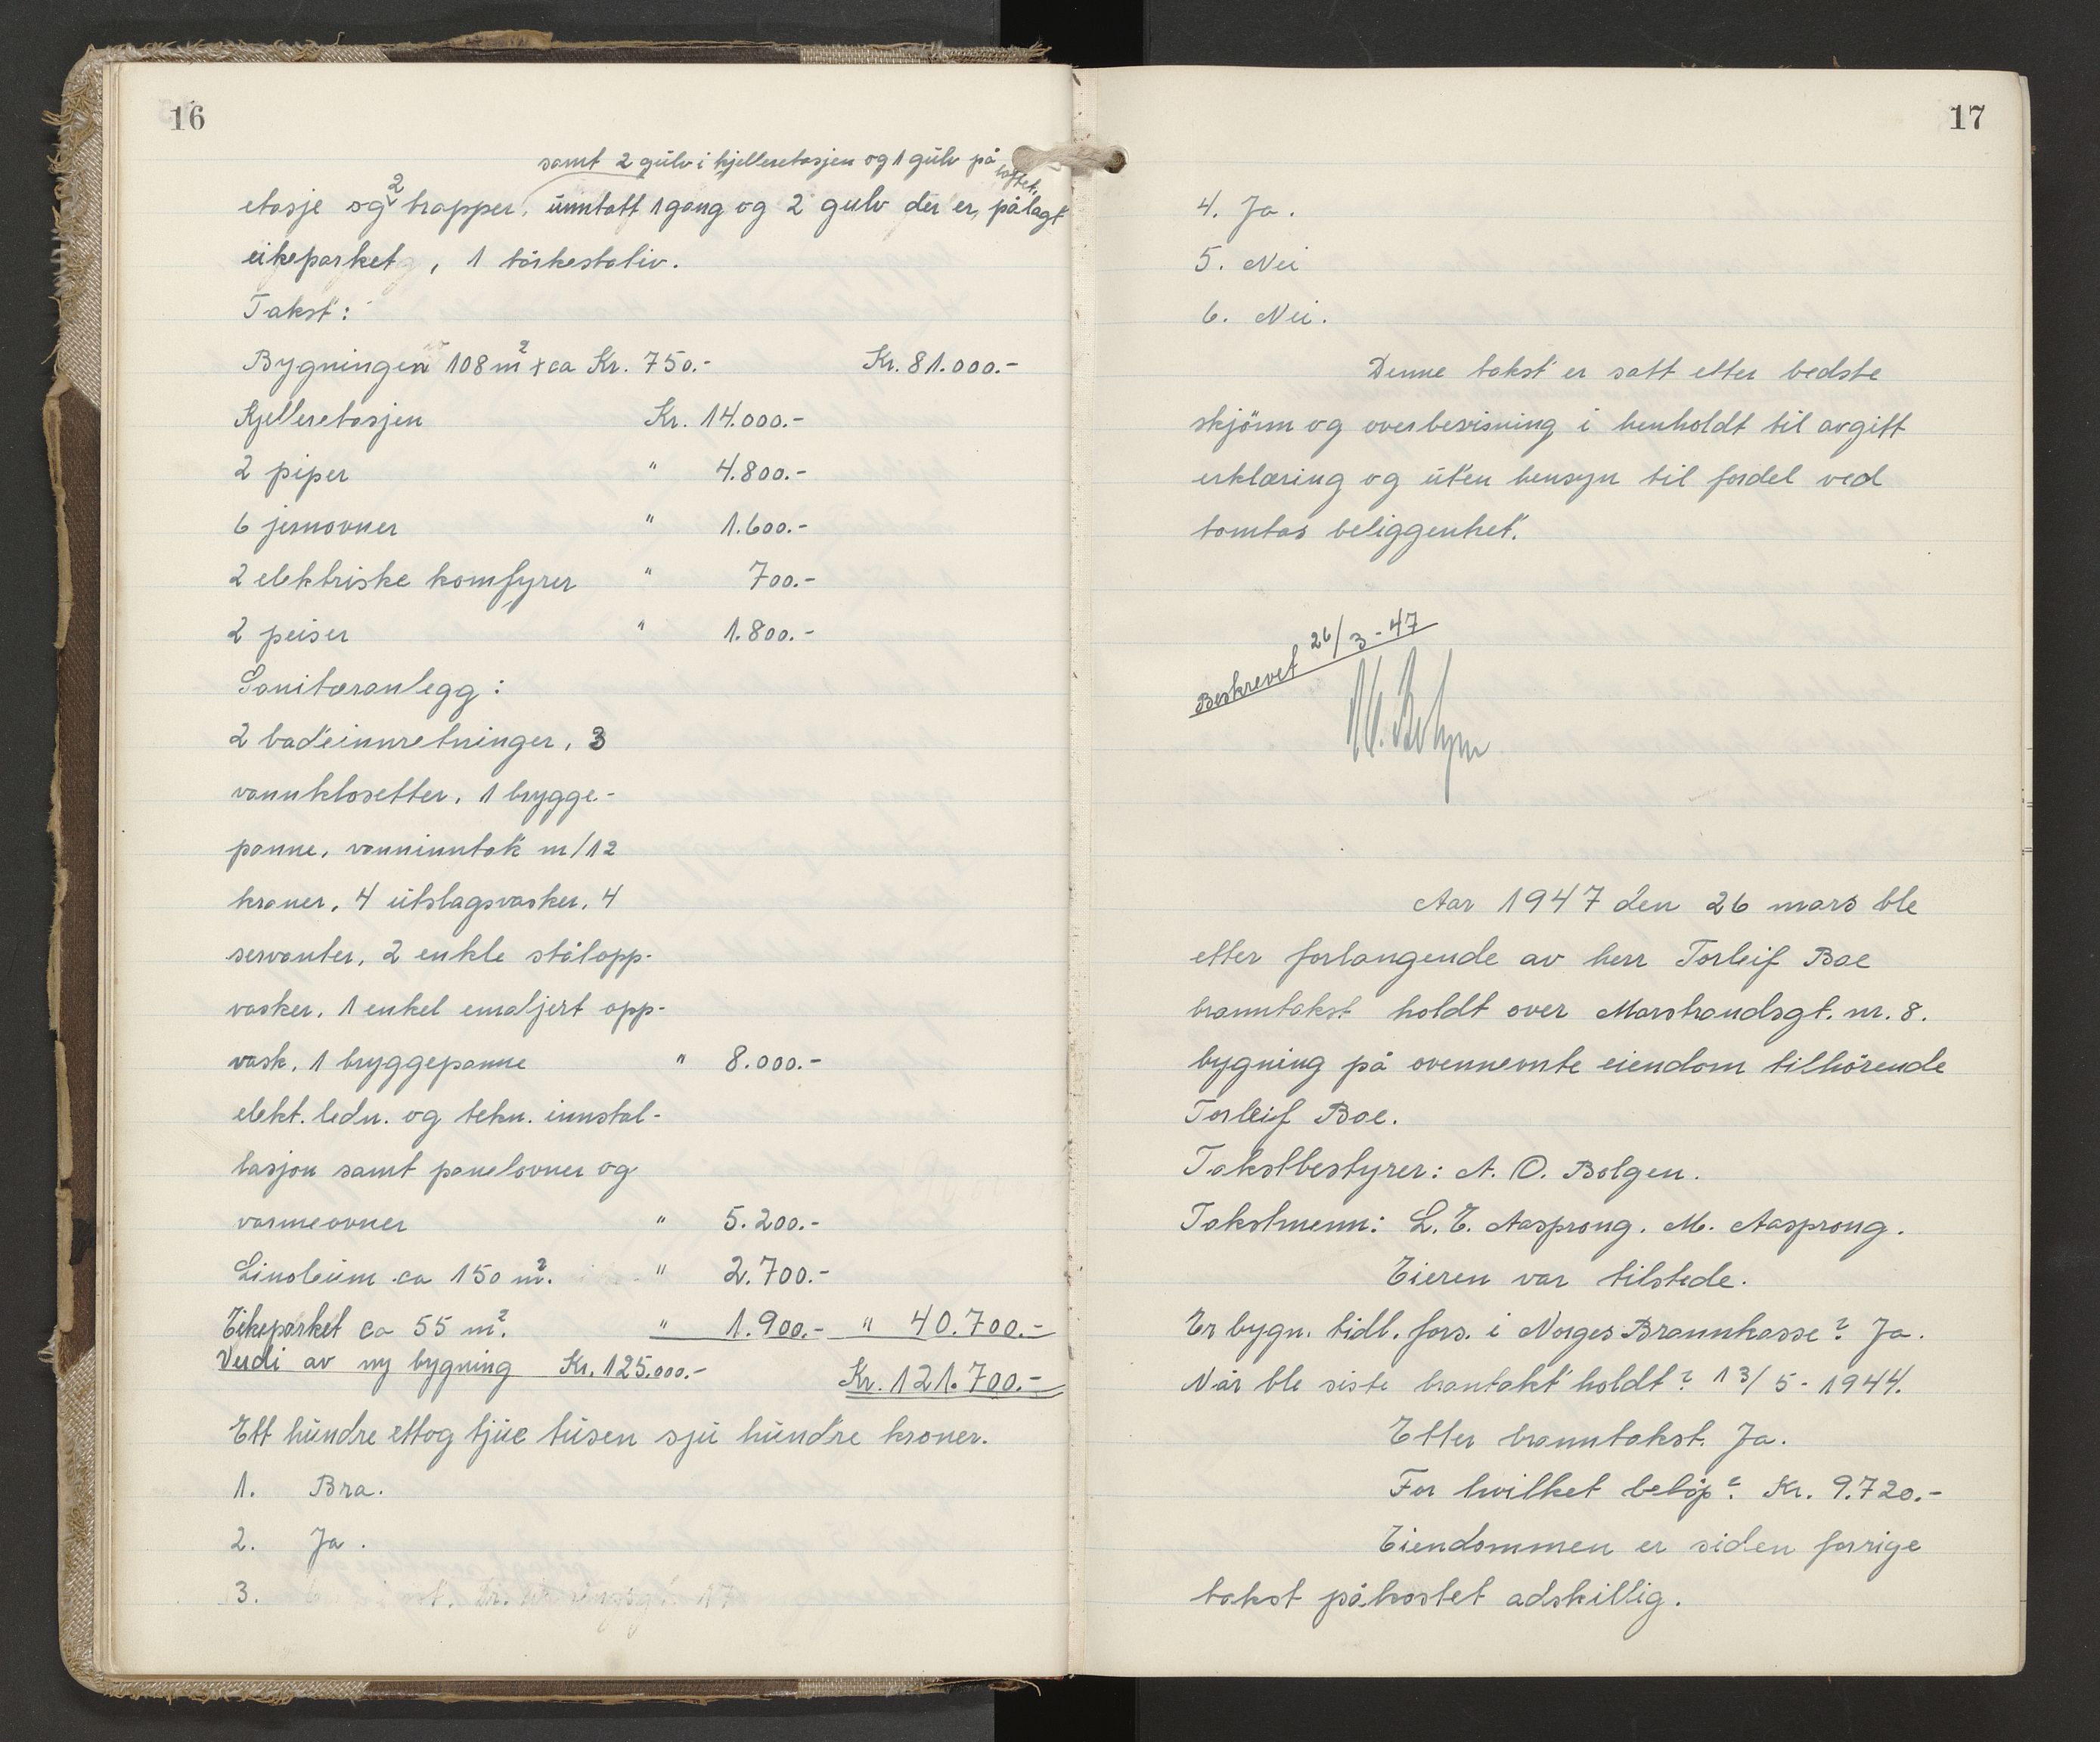 16
samt 2 gulv i kjelleretasjen og 1 gulv på
loftet.
2
etasje og trapper, unntatt 1 gang og 2 gulv der er pålagt
eikeparket, 1 törkestativ.
Takst:
Bygningen 108 m² x ca Kr. 750.- Kr. 81.000.-
Kjelleretasjen Kr. 14.000.-
2 piper " 4.800.-
6 jernovner " 1.600.-
2 elektriske komfyrer " 700.-
2 peiser " 1.800.-
Sanitæranlegg:
2 badeinnretninger, 3
vannklosetter, 1 brygge-
panne, vanninntak m/12
kraner, 4 utslagsvasker, 4
servanter, 2 enkle stålopp-
vasker, 1 enkel emaljert opp-
vask, 1 bryggepanne " 8.000.-
elekt. ledn. og tekn. innstal-
lasjon samt panelovner og
varmeovner " 5.200.-
Linoleum ca 150 m². " 2.700.-
Eikeparket ca 55 m². " 1.900.- " 40.700.-
Verdi av ny bygning Kr. 125.000.-
Kr. 121.700.-
Ett hundre ettog tjue tusen sju hundre kroner.
1. Bra.
2. Ja.
3.
17
4. Ja.
5. Nei
6. Nei.
Denne takst er satt etter bedste
skjönn og overbevisning i henholdt til avgitt
erklæring og uten hensyn til fordel ved
tomtas beliggenhet.
Beskrevet 26/3-47
Aar 1947 den 26 mars ble
etter forlangende av herr Torleif Boe
branntakst holdt over Marstrandsgt. nr. 8.
bygning på ovennevnte eiendom tilhörende
Torleif Boe.
Takstbestyrer: A. O. Bolgen.
Takstmenn: L. E. Aasprong. M. Aasprong.
Eieren var tilstede.
Er bygn. tidl. fors. i Norges Brannkasse? Ja.
Når ble siste brantakt holdt? 13/5-1944.
Etter branntakst. Ja.
For hvilket belöp? Kr. 9.720.-
Eiendommen er siden forrige
takst påkostet adskillig.